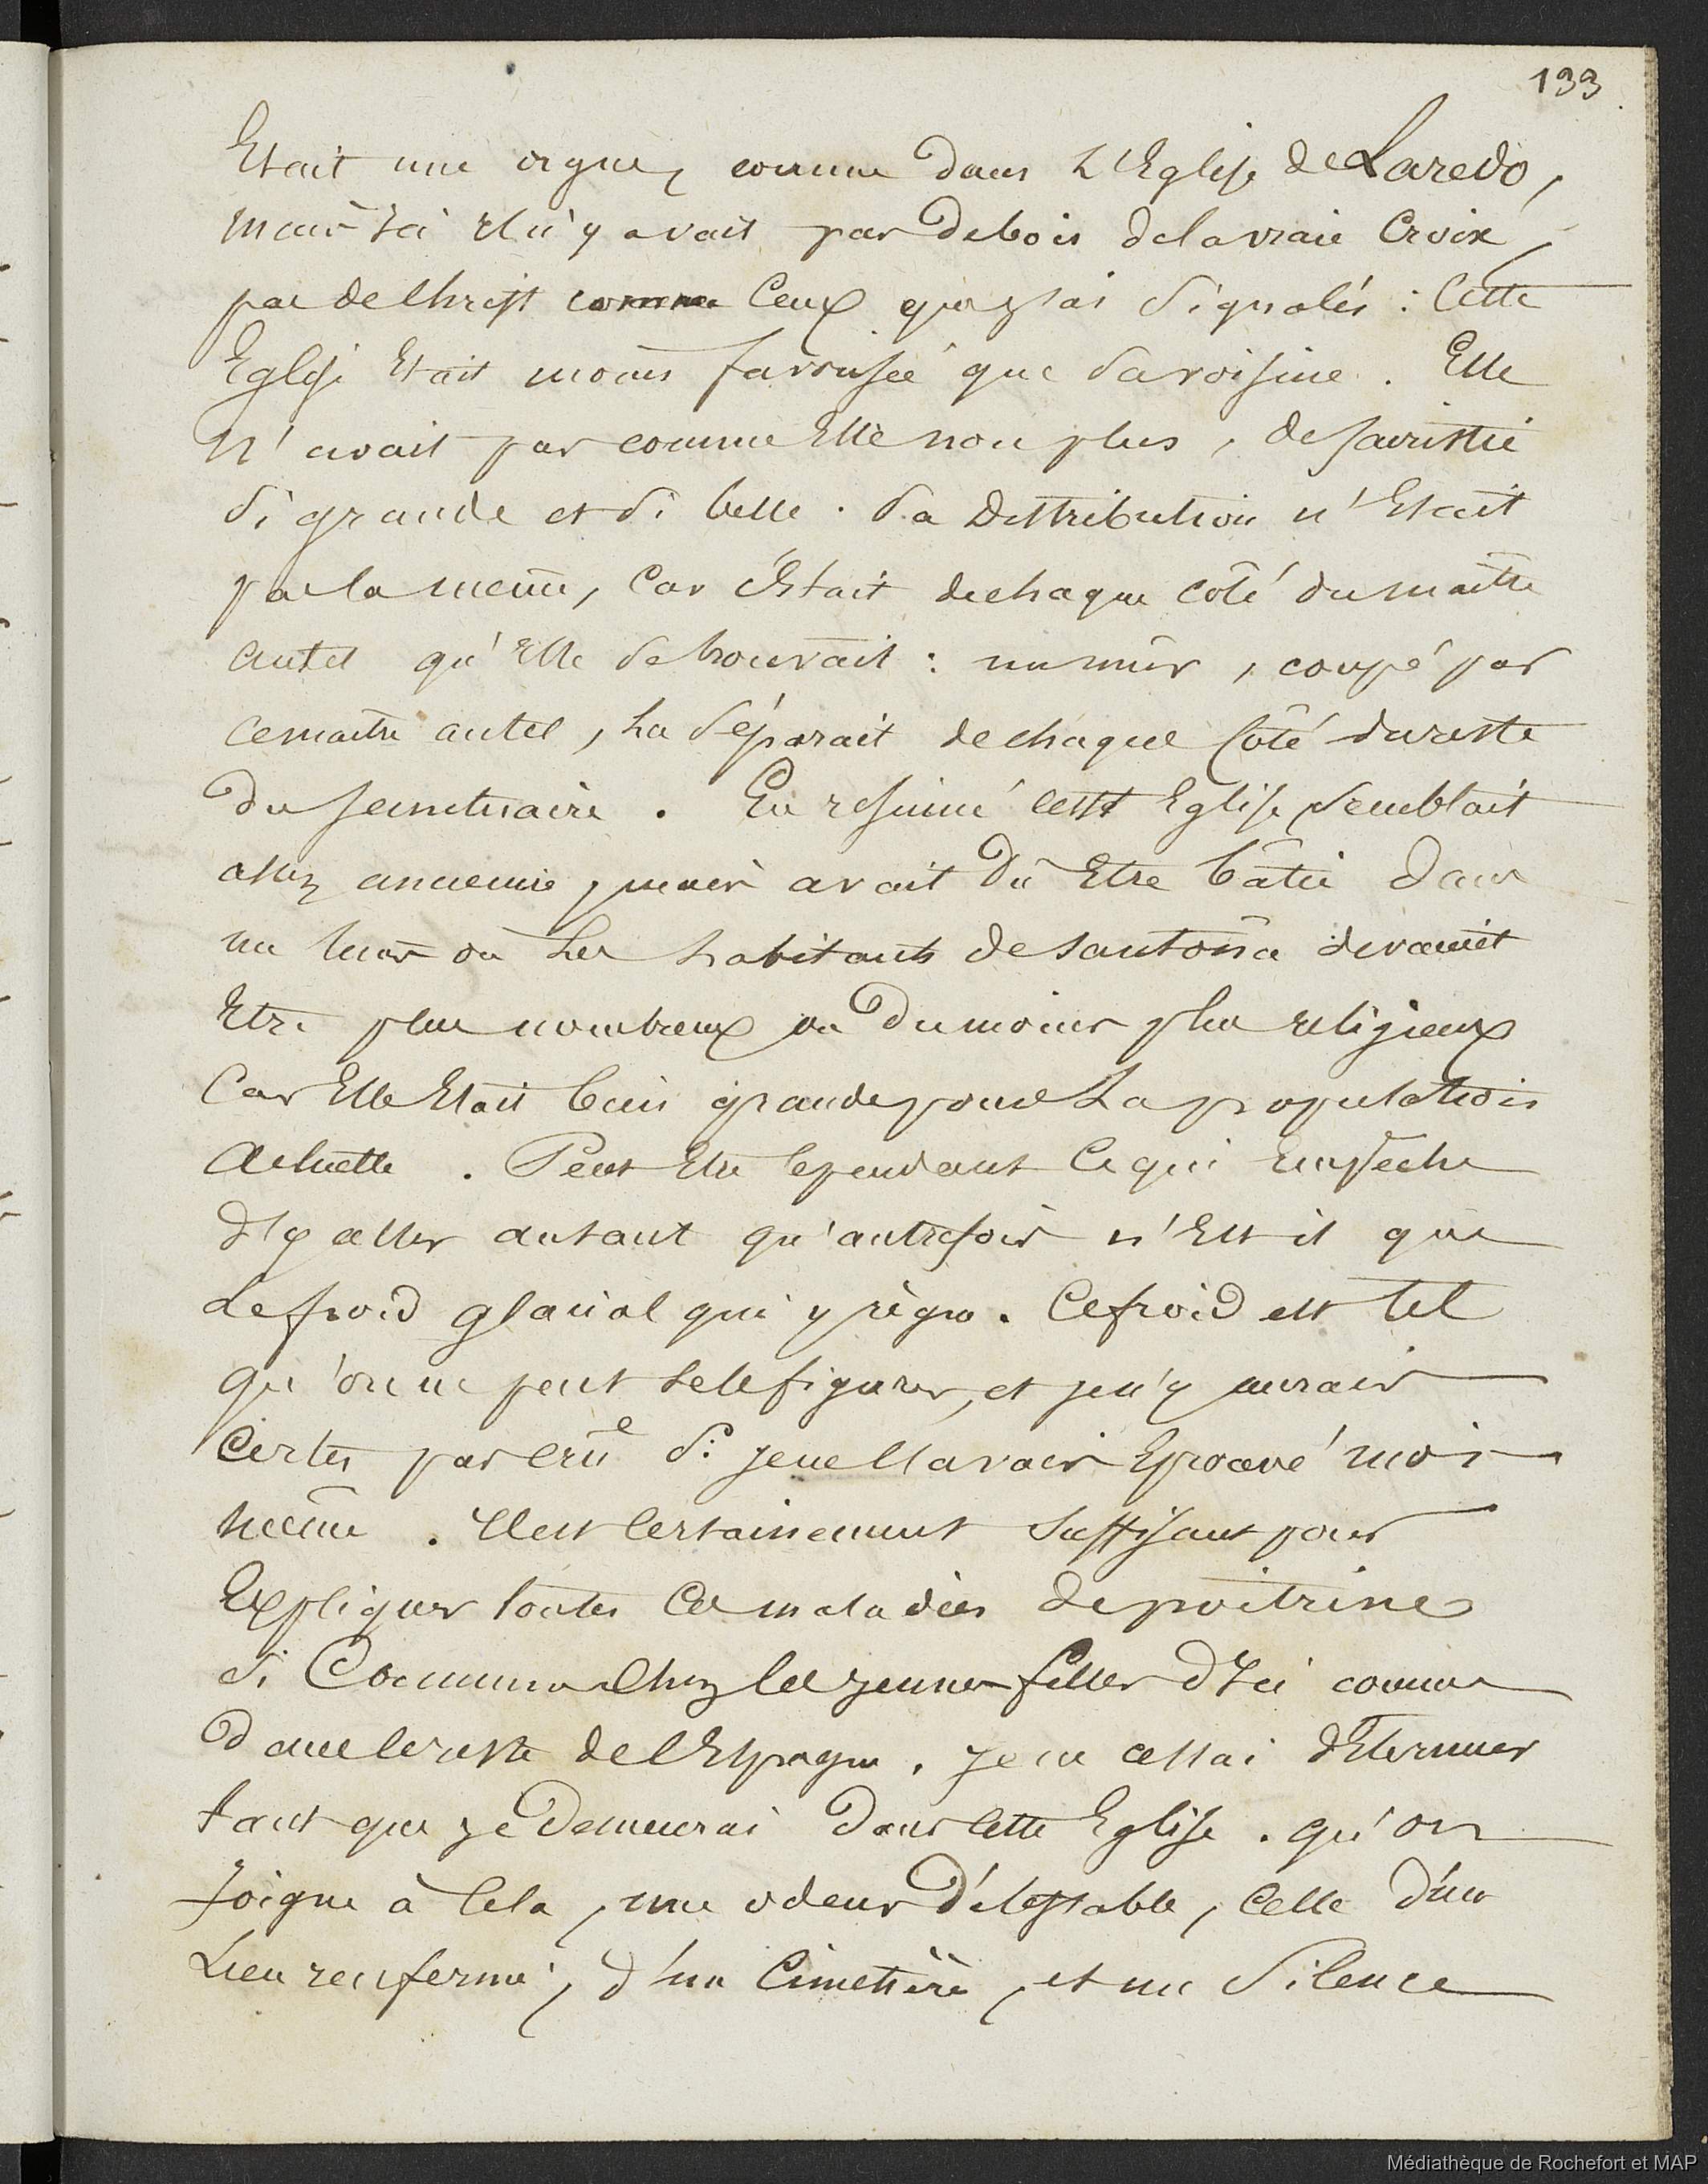 133
Etait une orgue, comme dans L'Eglise de Laredo,
mais Ici Il n'y avait pas de bois de la vraie Croix,
pas de Christ comme Ceux que j'ai Signalés : Cette
Eglise Etait moins favorisée que Sa voisine. Elle
N'avait pas comme Elle non plus, de sacristie
Si grande et Si belle. Sa Distribution n'Etait
pas la même, Car c'Etait de chaque côté du maître
autel qu'Elle Se trouvait : un mur, coupé par
ce maître autel, La Séparait de chaque Côté du reste
du sanctuaire. En résumé cette Eglise Semblait
assez ancienne, mais avait Dû Etre bâtie Dans
un tems où Les habitants de Santoña devaient
Etre plus nombreux ou Du moins plus religieux
Car Elle Etait bien grande pour La population
Actuelle. Peut Etre Cependant Ce qui Empêche
d'y aller autant qu'autrefois n'Est il que
Le froid glacial qui y règne. Ce froid est tel
qu'on ne peut se le figurer, et je n'y aurais
Certes pas Crû e Si je ne l'avais Eprouvé moi
même. Il est Certainement Suffisant pour
Expliquer toutes Ces maladies de poitrine
Si Communes Chez les jeunes filles d'Ici comme
Dans le reste de l'Espagne. Je ne cessai d'Eternuer
tant que je Demeurai Dans Cette Eglise. qu'on
Joigne à Cela, une odeur Détestable, Celle d'un
Lieu renfermé, d'un Cimetière, et un Silence
Médiathèque de Rochefort et MAP